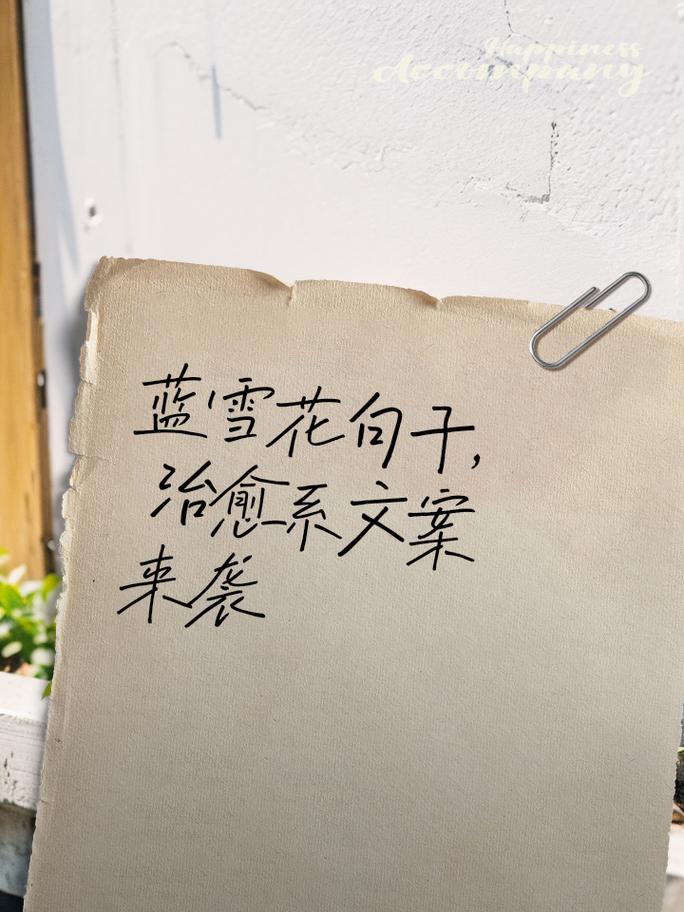 Happiness
Accompany
蓝雪花句子,
治愈系文案
来袭